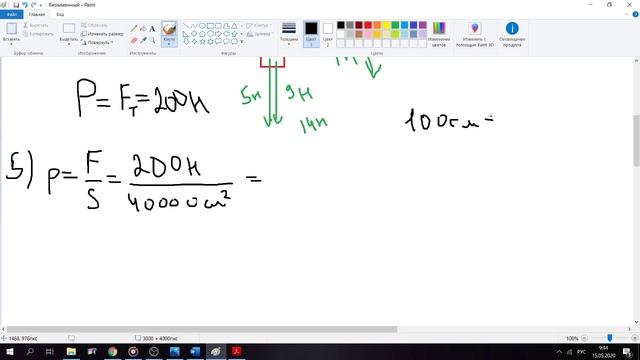 Безымянный - Paint
Файл Главная Вид
Вставить Выделить Изменить размер Кисти Контур Заливка Толщина Цвет 1 Цвет 2 Изменение цветов Изменить с помощью Paint 3D Оповещение о продукте
Буфер обмена Изображение Инструменты Фигуры Цвета
P = Fт = 200н
5н 9н
14н
100см =
5) p = F/S = 200н/40000см² =
1468, 976пкс 3000 × 4000пкс 100%
РУС 9:44 15.05.2020